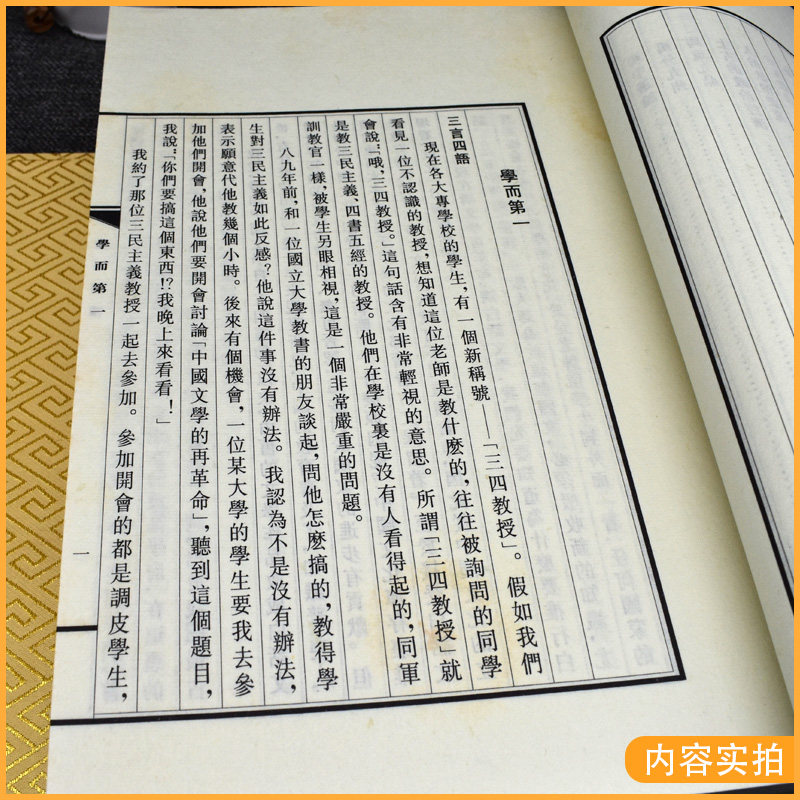 學而第一
三言四語
現在各大專學校的學生，有一個新稱號——「三四教授」。假如我們
看見一位不認識的教授，想知道這位老師是教什麽的，往往被詢問的同學
會說：「哦，三四教授。」這句話含有非常輕視的意思。所謂「三四教授」就
是教三民主義、四書五經的教授。他們在學校裏是沒有人看得起的，同軍
訓教官一樣，被學生另眼相視，這是一個非常嚴重的問題。
八九年前，和一位國立大學教書的朋友談起，問他怎麽搞的，教得學
生對三民主義如此反感？他說這件事沒有辦法。我認為不是沒有辦法，
表示願意代他教幾個小時。後來有個機會，一位某大學的學生要我去參
加他們開會，他說他們要開會討論「中國文學的再革命」，聽到這個題目，
我說：「你們要搞這個東西！？我晚上來看看！」
我約了那位三民主義教授一起去參加。參加開會的都是調皮學生，
學而第一
一
内容实拍